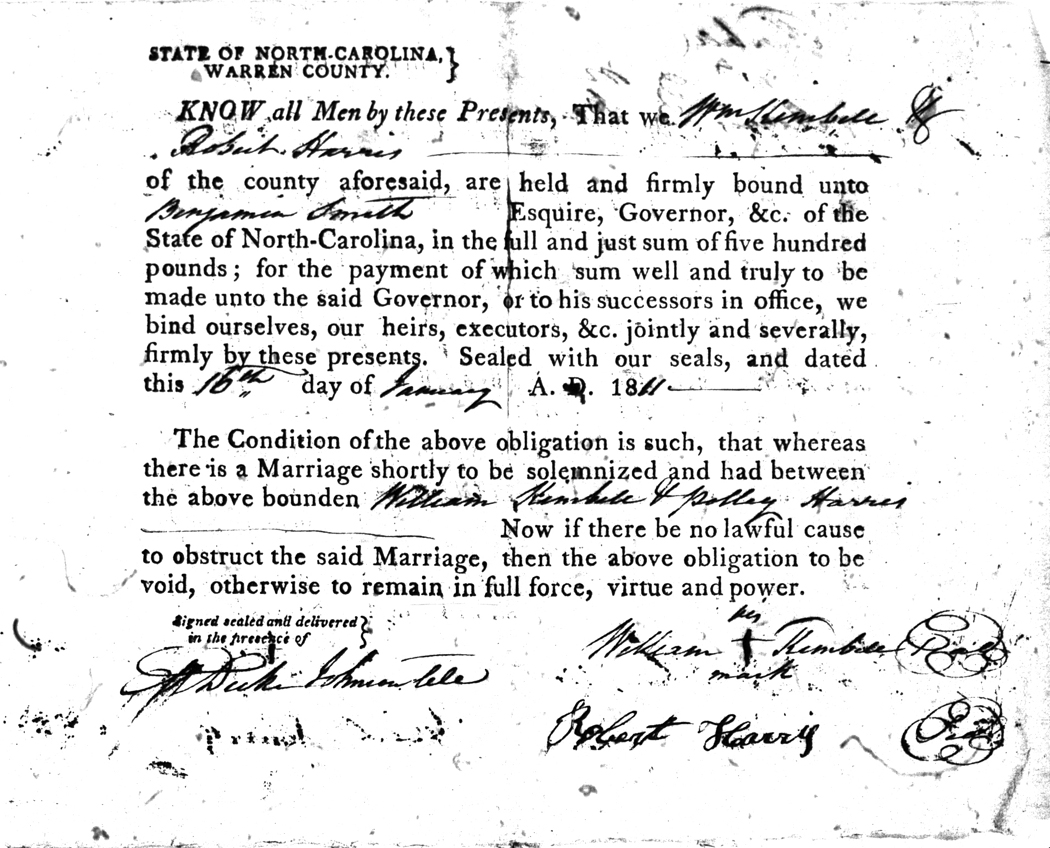 STATE OF NORTH-CAROLINA, }
WARREN COUNTY.
KNOW all Men by these Presents, That we Wm Kimbell &
Robert Harris
of the county aforesaid, are held and firmly bound unto
Benjamin Smith Esquire, Governor, &c. of the
State of North-Carolina, in the full and just sum of five hundred
pounds; for the payment of which sum well and truly to be
made unto the said Governor, or to his successors in office, we
bind ourselves, our heirs, executors, &c. jointly and severally,
firmly by these presents. Sealed with our seals, and dated
this 16th day of January A. D. 1811
The Condition of the above obligation is such, that whereas
there is a Marriage shortly to be solemnized and had between
the above bounden William Kimbell & Polley Harris
Now if there be no lawful cause
to obstruct the said Marriage, then the above obligation to be
void, otherwise to remain in full force, virtue and power.
Signed sealed and delivered }
in the presence of
his
William + Kimbell Seal
mark
Johnson
Robert Harris Seal